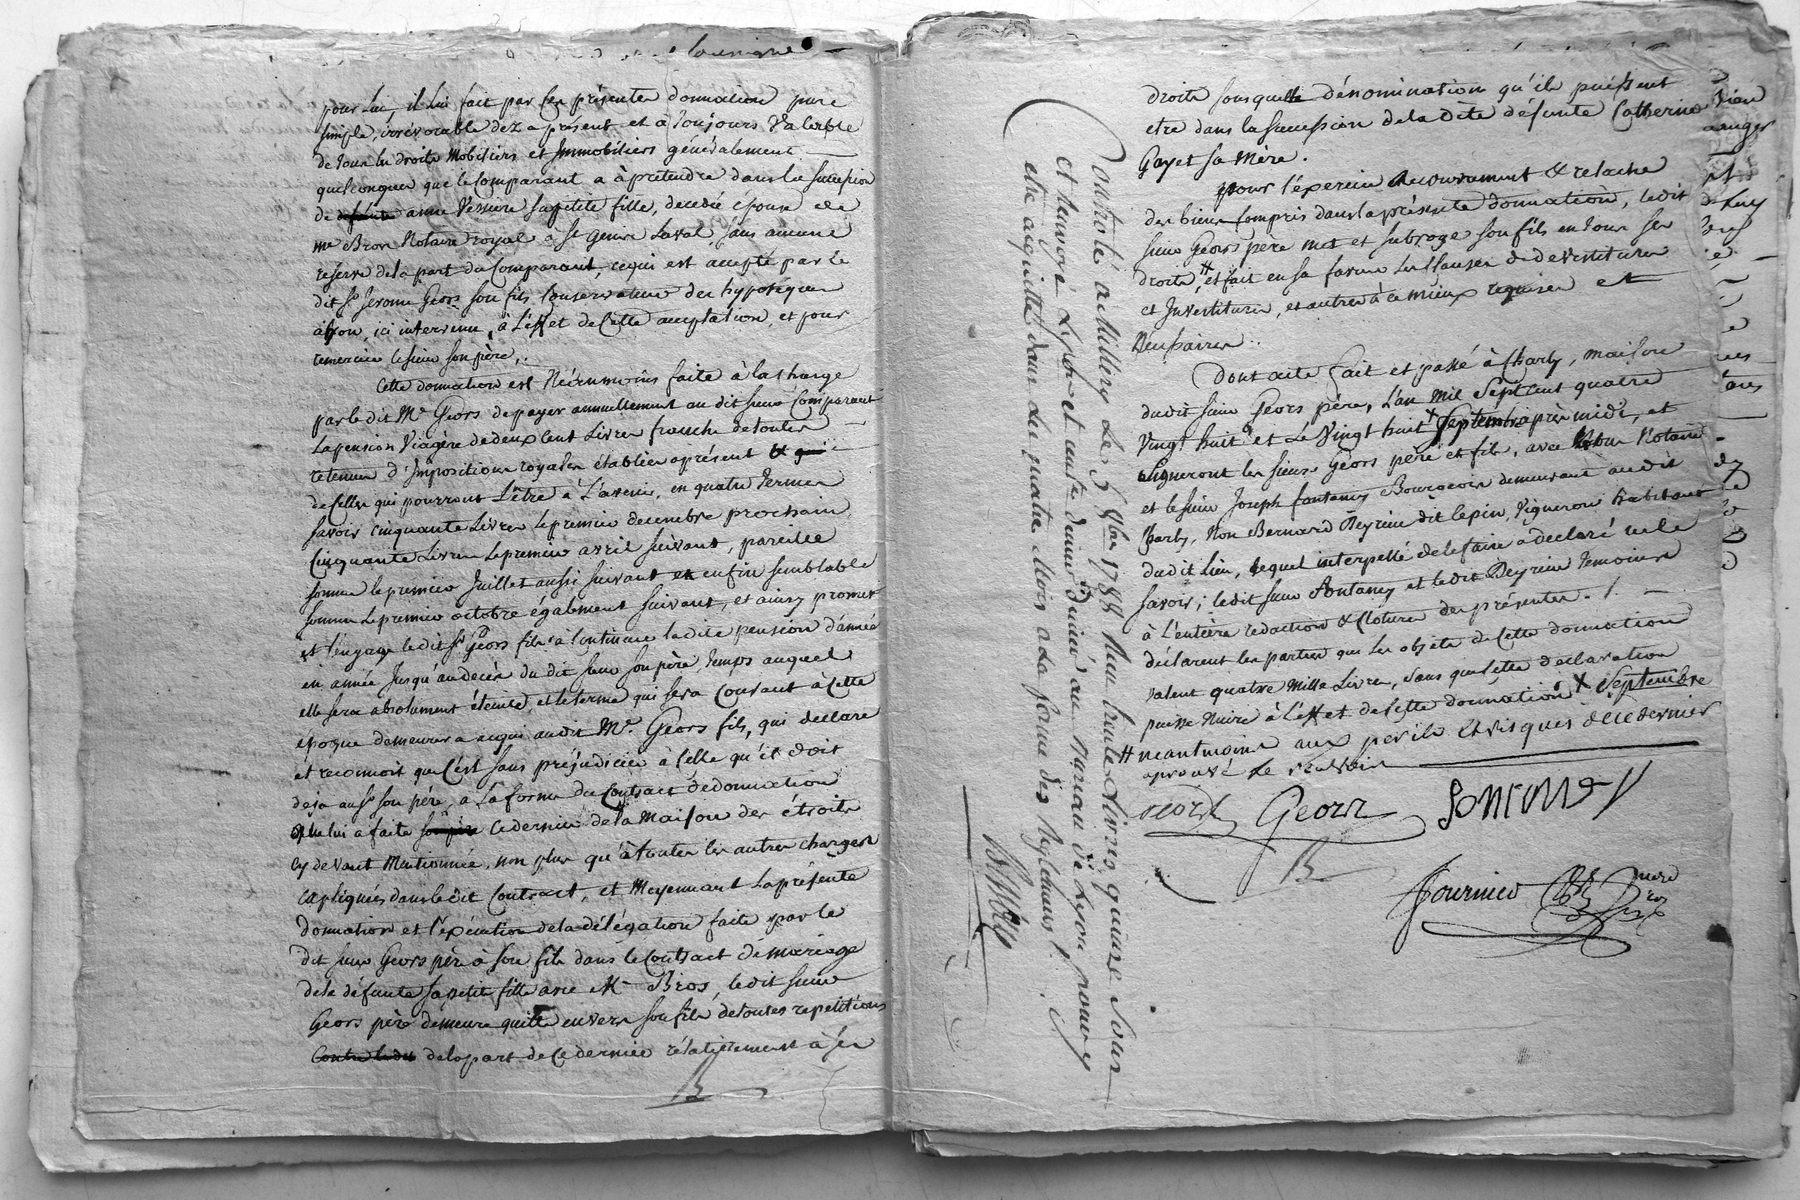 soussigné
pour lui, il lui fait par les présentes donnation pure
simple, irrévocable dez a présent et a toujours valable
de tous les droits Mobiliers et Immobiliers généralement
quelconques que le Comparant a à prétendre dans la succession
de défunte anne Vessiere sa petite fille, decedée épouse de
me Bros Notaire royal à St genis Laval, sans aucune
reserve de la part du Comparant, ce qui est accepté par le
dit Sr Jerome Geors son fils Conservateur des hypotéques
à Lyon, ici intervenu, à l'effet de Cette acceptation, et pour
remercier le sieur son père,.
Cette donnation est Néeanmoins faite à la charge
par le dit Mr. Geors de payer annuellement au dit sieur Comparant
la pension Viagère de deux Cent Livres franche de toutes
retenues d'Impositions royales établies aprésent & qui
de Celles qui pourront L'être à L'avenir, en quatre termes
savoir cinquante Livres le premier decembre prochain
Cinquante Livres le premier avril suivant, pareille
somme le premier Juillet aussi suivant et enfin semblable
somme le premier octobre également suivant, et ainsy promet
et s'engage le dit Sr Geors fils à Continuer la dite pension d'année
en année Jusqu'au decès du dit sieur son père, temps auquel
elle sera absolument éteinte, et le terme qui sera Courant à Cette
époque demeurera acquis au dit Mr. Geors fils, qui declare
et reconnoit que C'est sans préjudicier à Celle qu'il doit
deja au Sr son père, a la forme du Contract de donnation
que lui a faite son père ce dernier de la Maison des étroits
cy devant Mentionnée, non plus qu'à toutes les autres charges
expliquées dans le dit Contract, et Moyennant la présente
donnation et l'exécution de la délégation faite par le
dit sieur Geors père à son fils dans le Contract de mariage
de la défunte sa petite fille avec Me Bros, le dit sieur
Geors père demeure quitte envers son fils de toutes repetitions
Contre le dit de la part de Ce dernier rélativement à ses
B
Controlé a Millery Le 9 8bre 1788 Reçu trente Livres quinze Sous
et renvoyé Léger et cente denier denier au Bureau de Lyon pour y
etre acquitté dans les quatre Mois a La forme des Reglemens /.
droits sous quelle dénomination qu'ils puissent
etre dans la succession de la dite défunte Catherine
Gayet sa mère.
pour l'éxercice recouvrement & relache
des biens compris dans la présente donnation, le dit
sieur Geors pere met et subroge son fils en tous ses
droits, # et fait en sa faveur les Clauses de devestiture
et Investiture, et autres à ce mieux requises et
Necessaires..
Dont acte fait et passé à Charly, maison
du dit sieur Geors père, L'an mil sept cent quatre
vingt huit et Le vingt huit X septembre apres midi, et
signeront les sieurs Geors père et fils, avec Nous Notaire
et le sieur Joseph fontannes Bourgeois demeurant au dit
Charly, Non Bernard Peyrieu dit lepin, vigneron habitant
du dit Lieu, lequel interpellé de le faire a declaré ne le
savoir; le dit sieur Fontannes et le dit Peyrieu temoins
à L'entière redaction & Cloture des présentes. /. —
déclarent les parties que les objets de Cette donnation
valent quatre Mille Livres, sans que Cette declaration
puisse Nuire à L'effet de Cette donnation X septembre
# néantmoins aux perils et risques de ce dernier
aprouvé le renvoi
Geors Geors fontannes
B
fournier